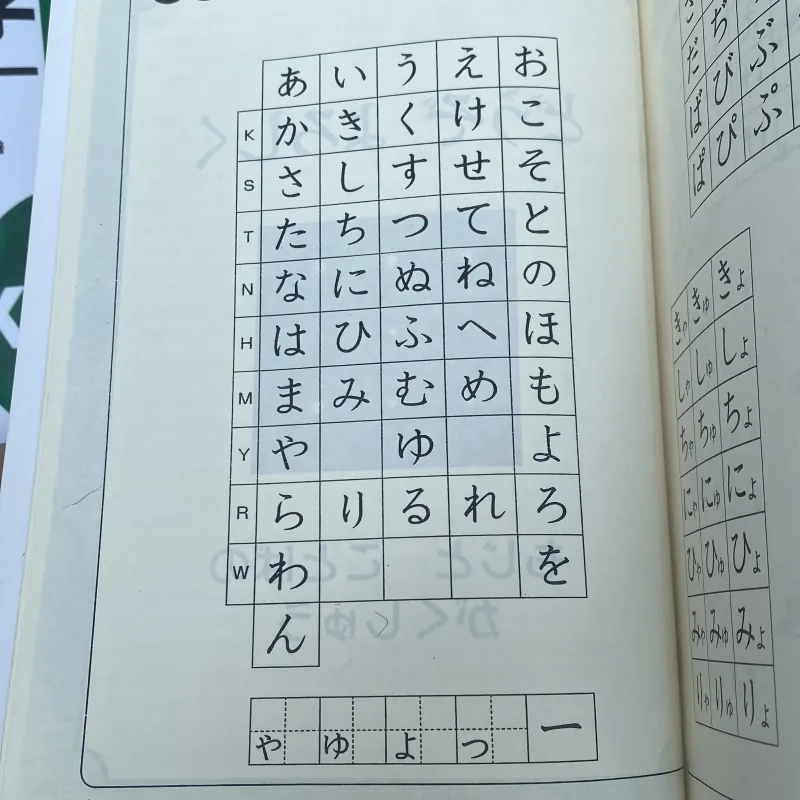 あ い う え お
K か き く け こ
S さ し す せ そ
T た ち つ て と
N な に ぬ ね の
H は ひ ふ へ ほ
M ま み む め も
Y や ゆ よ
R ら り る れ ろ
W わ を
ん
ゃ ゅ ょ っ ー
ぢ
だ ぢ ぶ
ば び ぷ
ぱ ぴ
きゃ きゅ きょ
しゃ しゅ しょ
ちゃ ちゅ ちょ
にゃ にゅ にょ
ひゃ ひゅ ひょ
みゃ みゅ みょ
りゃ りゅ りょ